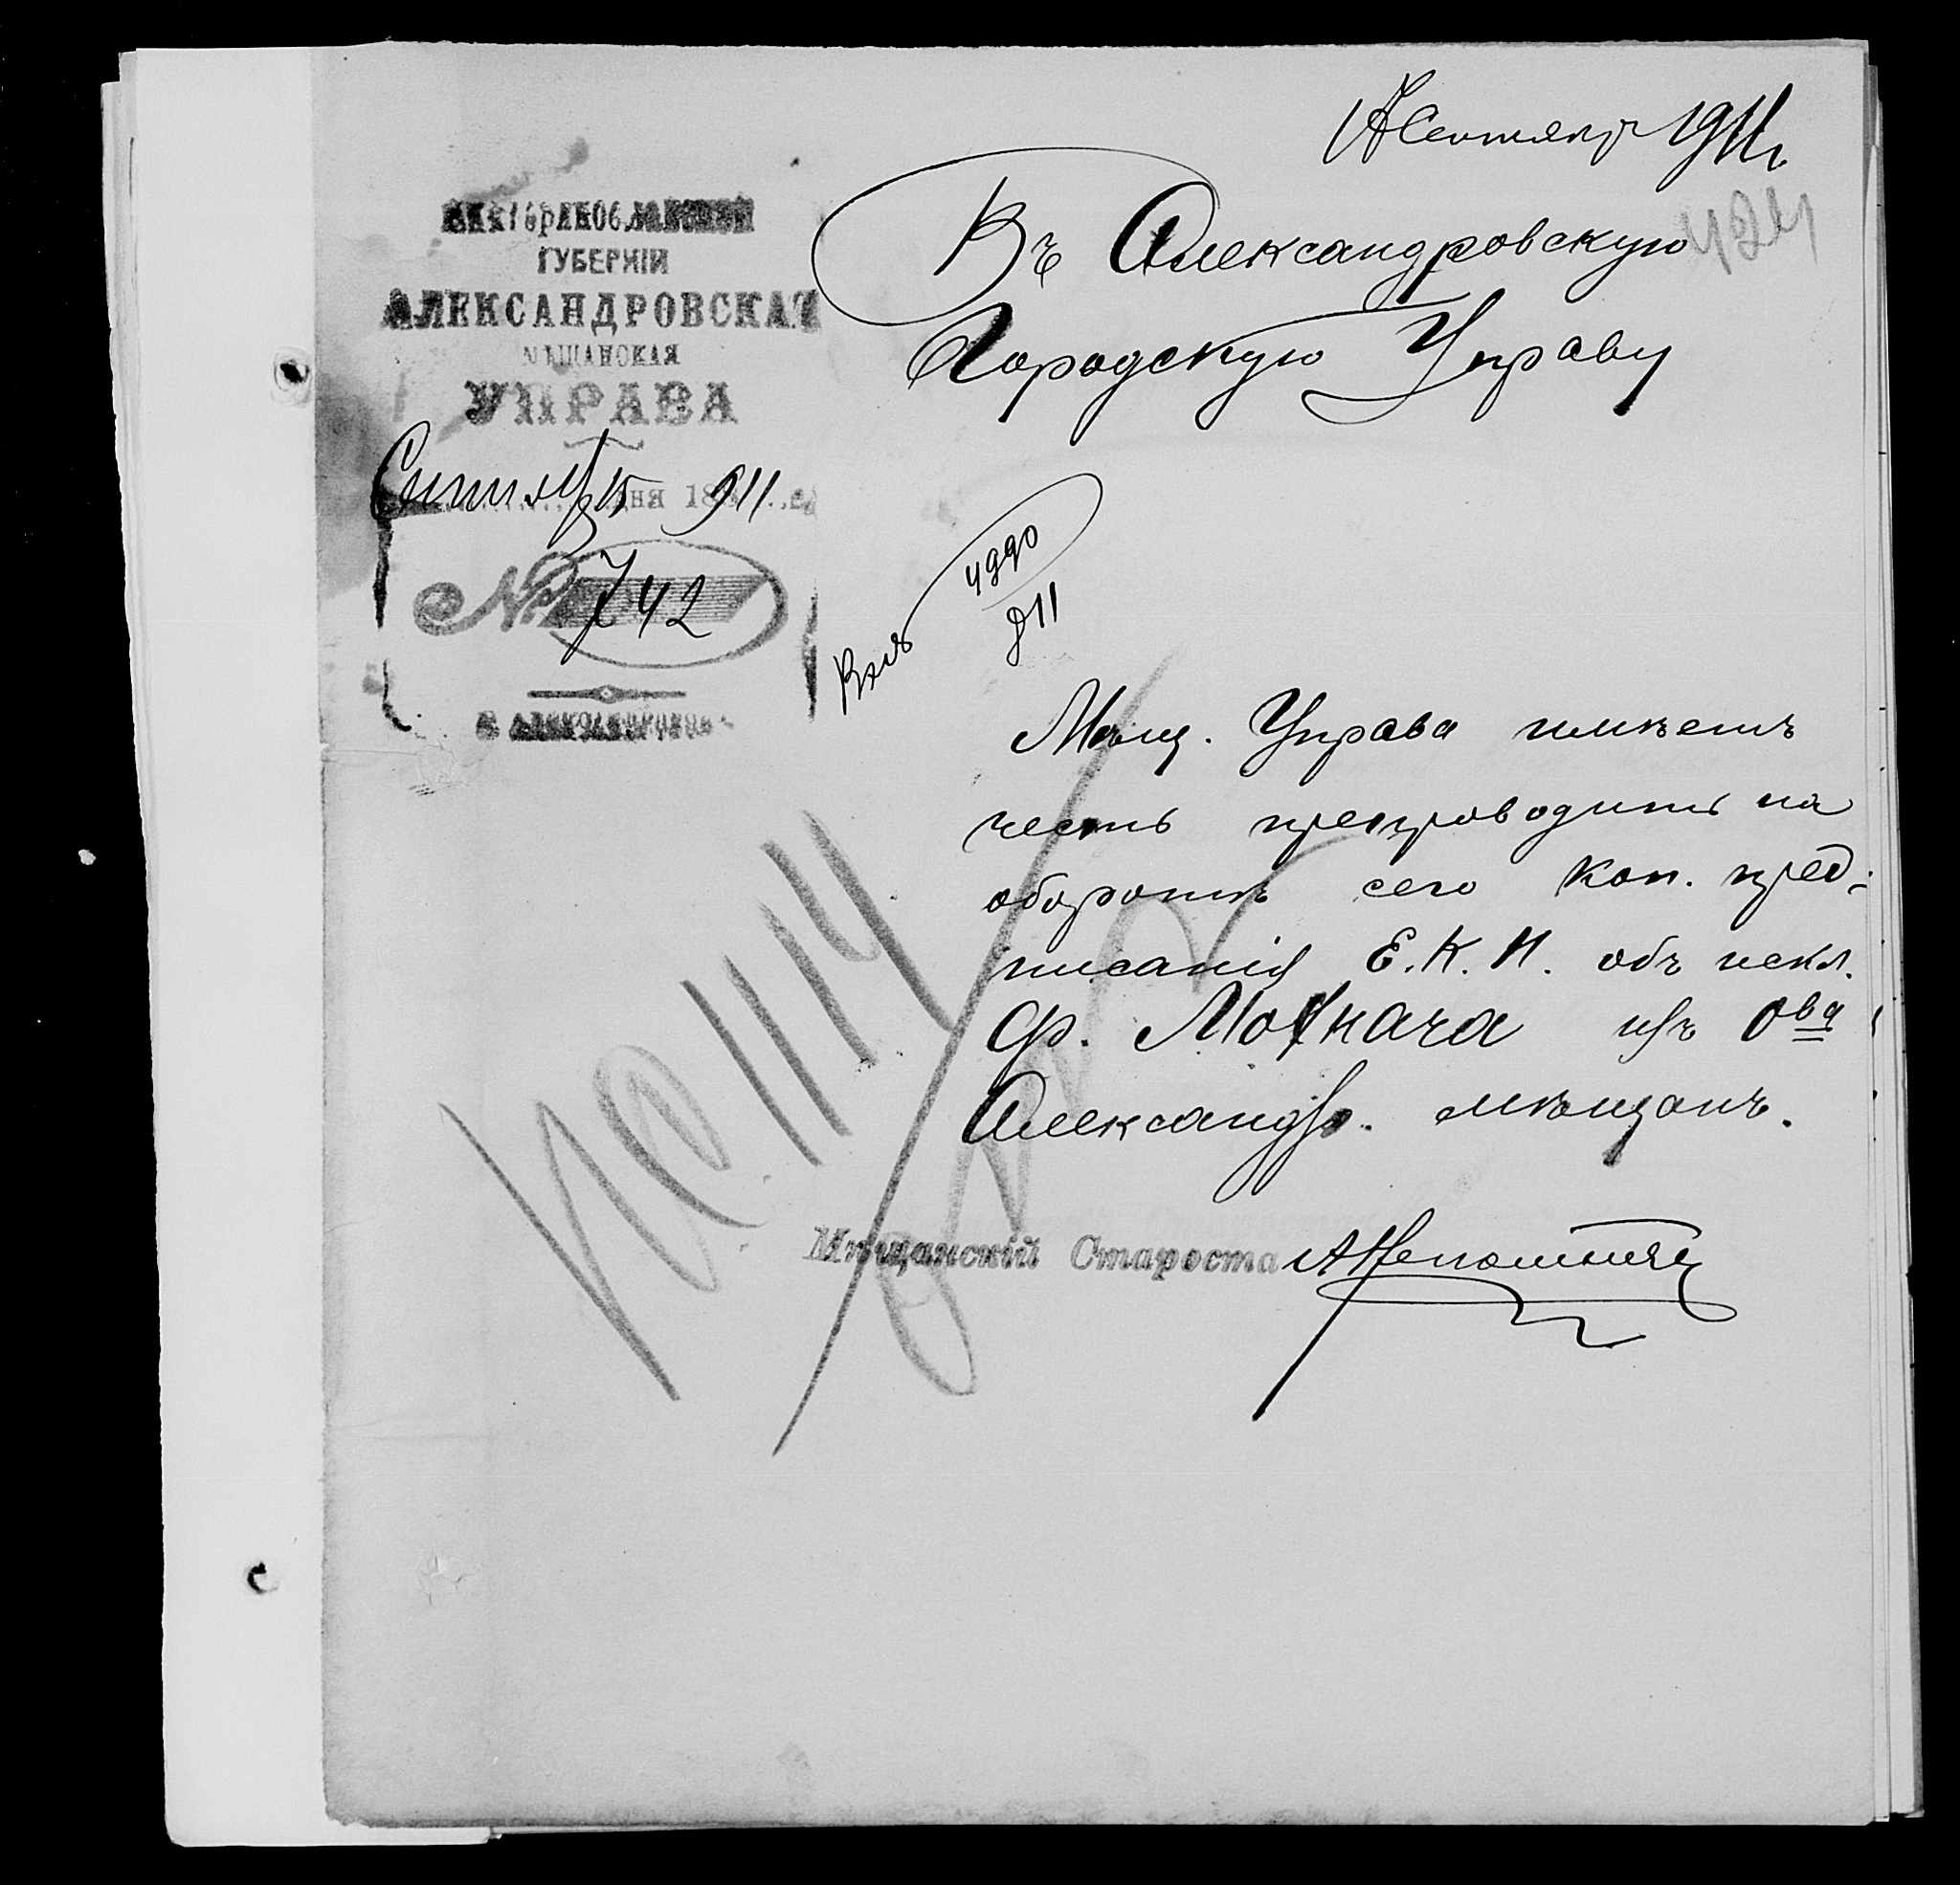 Сентября 1911г
424
ЕКАТЕРИНОСЛАВСКОЙ
ГУБЕРНІИ
АЛЕКСАНДРОВСКАЯ
МѢЩАНСКАЯ
УПРАВА
Сентяб 15 дня 18 911
№ 742
Г. АЛЕКСАНДРОВСКЪ
Въ Александровскую
Городскую Управу
4990
911
Мѣщ. Управа имѣетъ
честь препроводить на
оборотѣ сего коп. пред-
писанія Е. К. П. объ искл.
Ф. Мохнача изъ О-ва
Александр. мѣщанъ.
Мѣщанскій Староста АНепомнящ